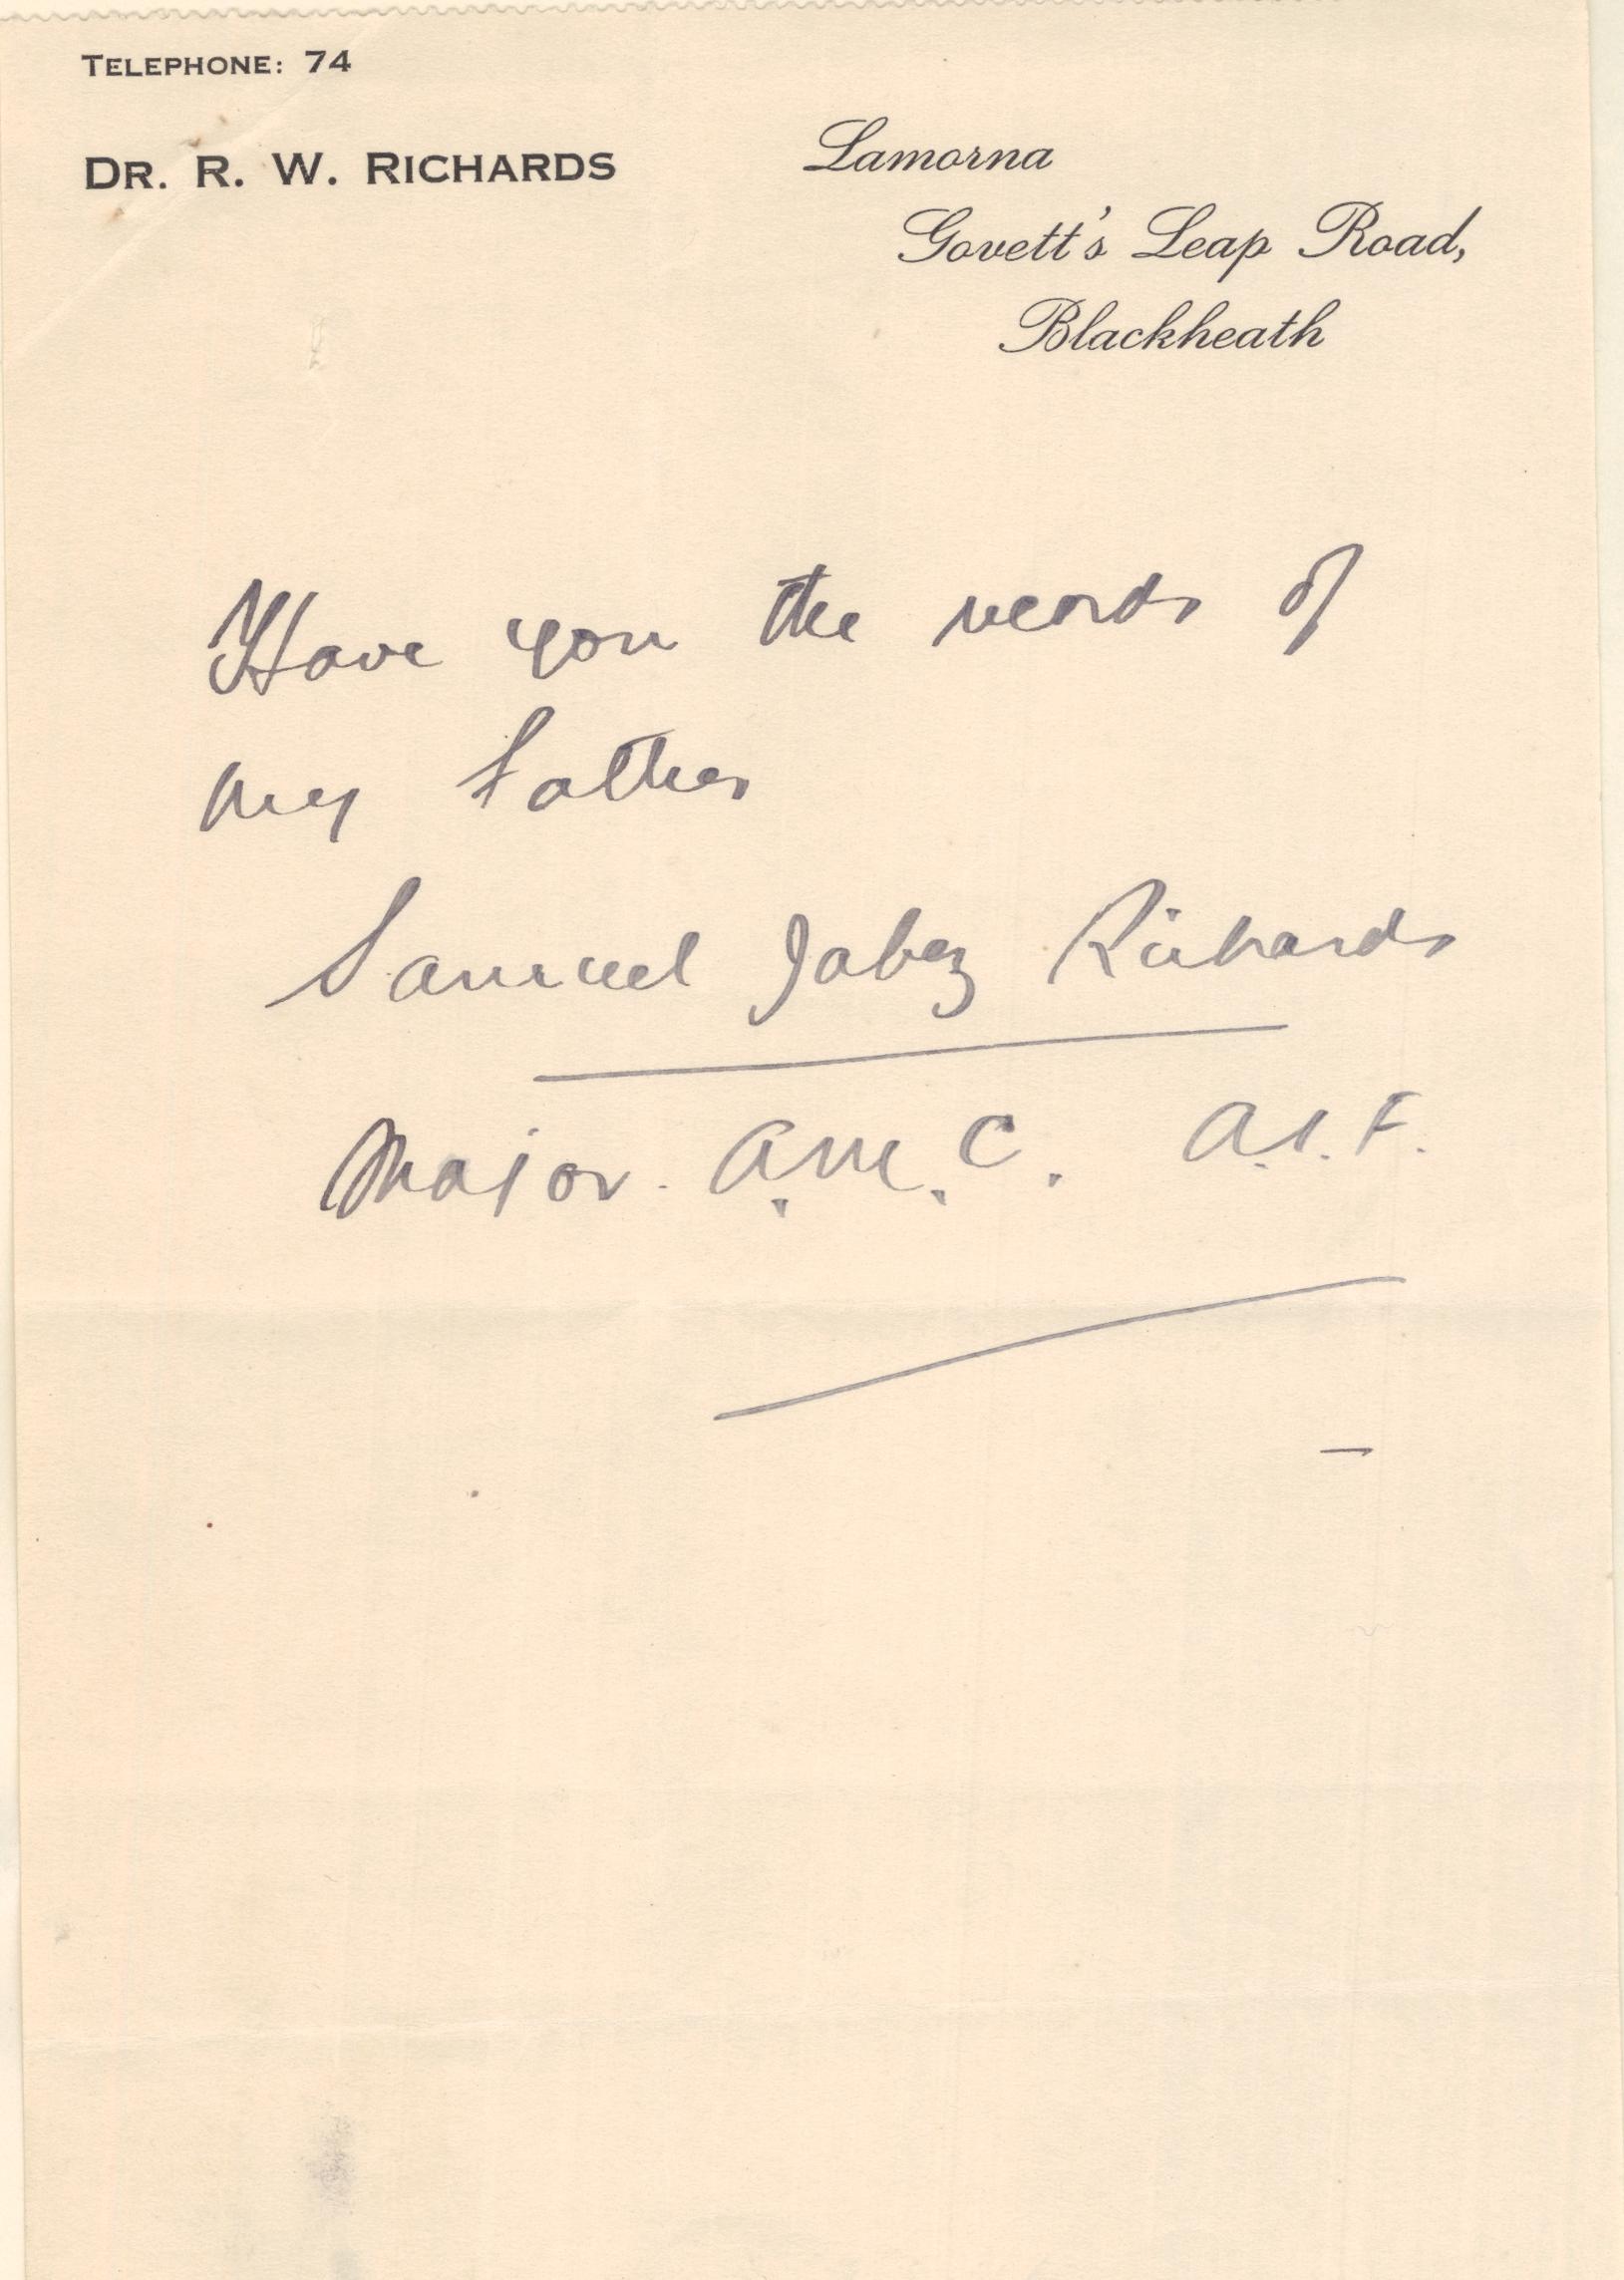 TELEPHONE: 74
DR. R. W. RICHARDS
Lamorna
Govett's Leap Road,
Blackheath
Have you the records of
my father
Samuel Jabez Richards
Major. A.M.C. A.I.F.